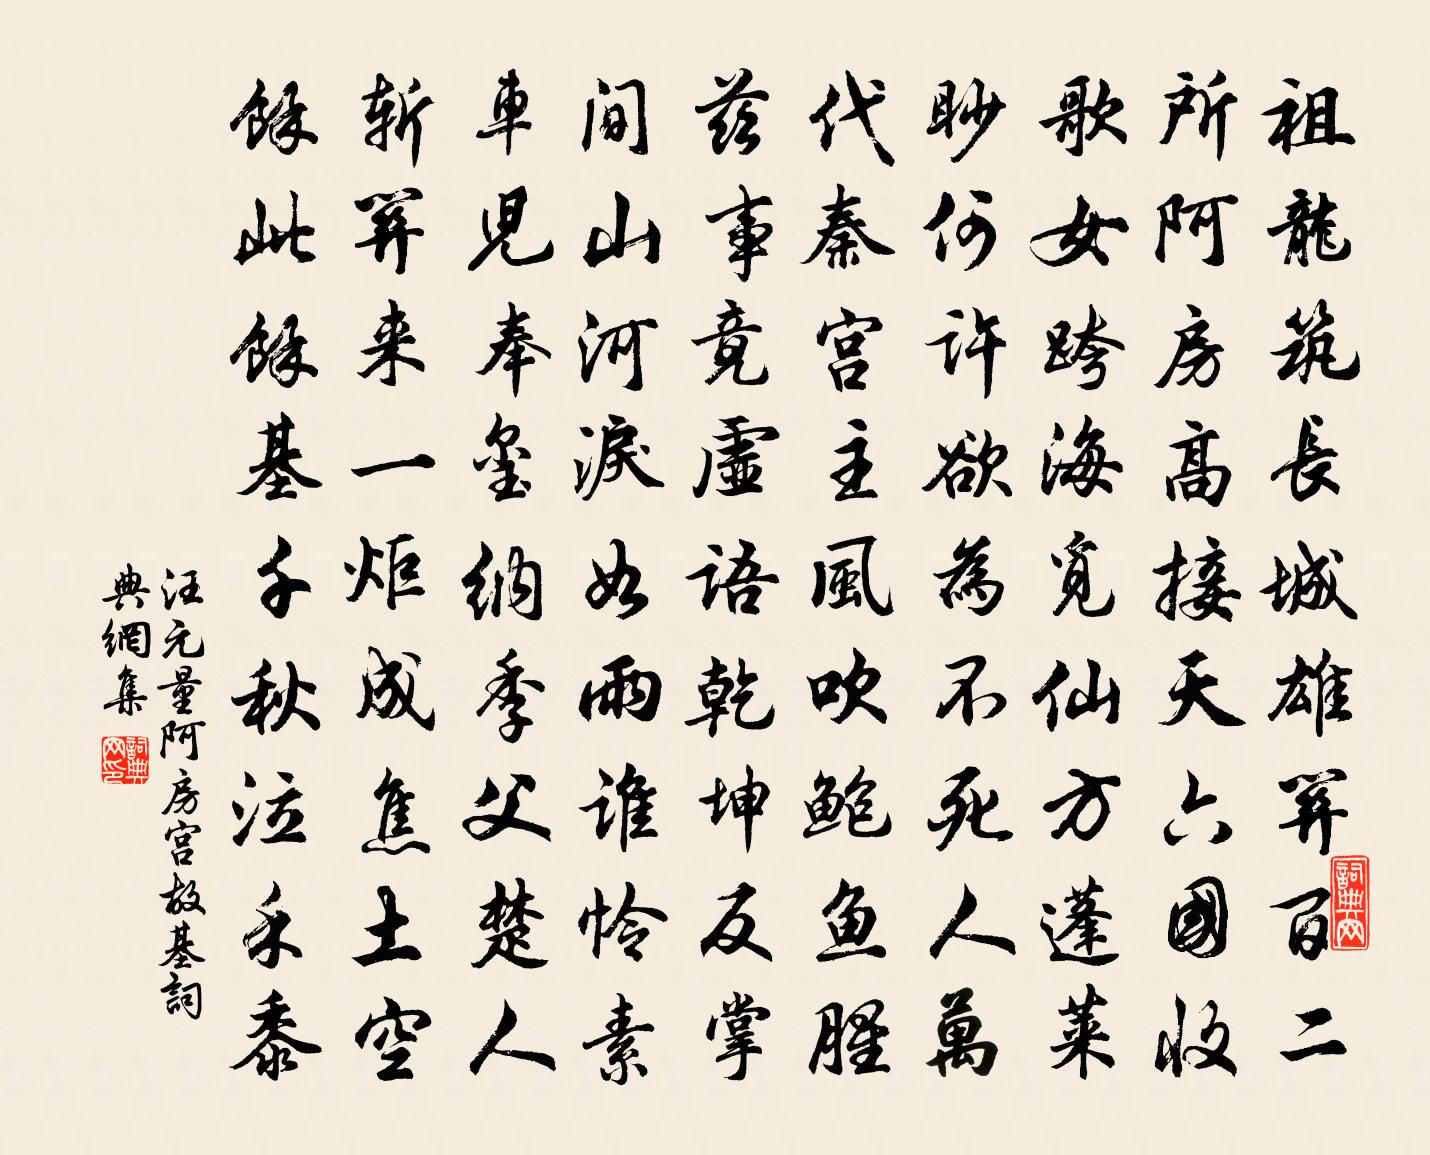 祖龍筑長城雄關百二
所阿房高接天六國收
歌女跨海覓仙方蓬萊
眇何許欲為不死人萬
代秦宮主風吹鮑魚腥
茲事竟虛語乾坤反掌
間山河淚如雨誰憐素
車兒奉璽納季父楚人
斬關来一炬成焦土空
餘此餘基千秋泣禾黍
汪元量阿房宮故基詞
典網集
詞典网
詞典网印